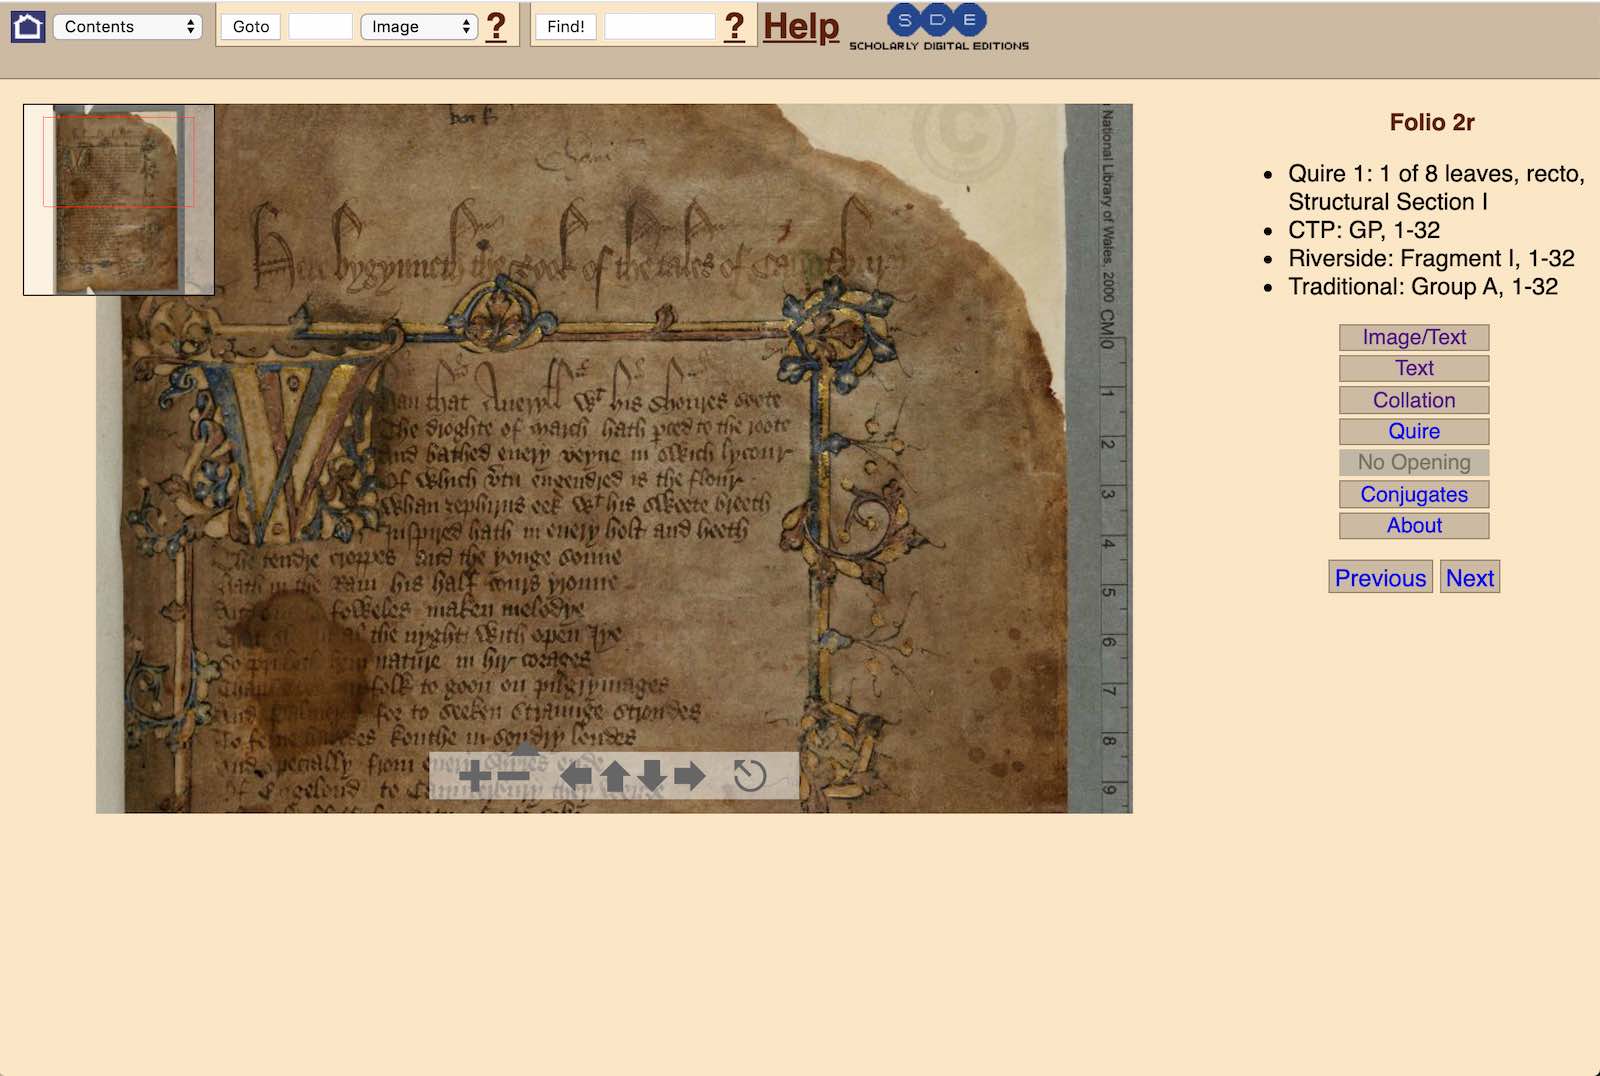 Contents
Goto
Image
?
Find!
?
Help
S D E
SCHOLARLY DIGITAL EDITIONS
Here bygynneth the Book of the tales of Caunterbury
Whan that Aueryll wt his shoures soote
The droghte of march hath pced to the roote
And bathed euery veyne in swich lycour
Of which vtu engendred is the flour
Whan zephirus eek wt his sweete breeth
Inspired hath in euery holt and heeth
The tendre croppes and the yonge sonne
Hath in the Ram his half cours yronne
foweles maken melodye
al the nyght with open Iye
So nature in hir corages
folk to goon on pilgrymages
And for to seeken straunge strondes
To ferne kouthe in sondry londes
And specially from euery shires ende
Of Engelond to Caunterbury they wende
National Library of Wales, 2000 CM
0
1
2
3
4
5
6
7
8
9
©
Folio 2r
• Quire 1: 1 of 8 leaves, recto,
Structural Section I
• CTP: GP, 1-32
• Riverside: Fragment I, 1-32
• Traditional: Group A, 1-32
Image/Text
Text
Collation
Quire
No Opening
Conjugates
About
Previous Next